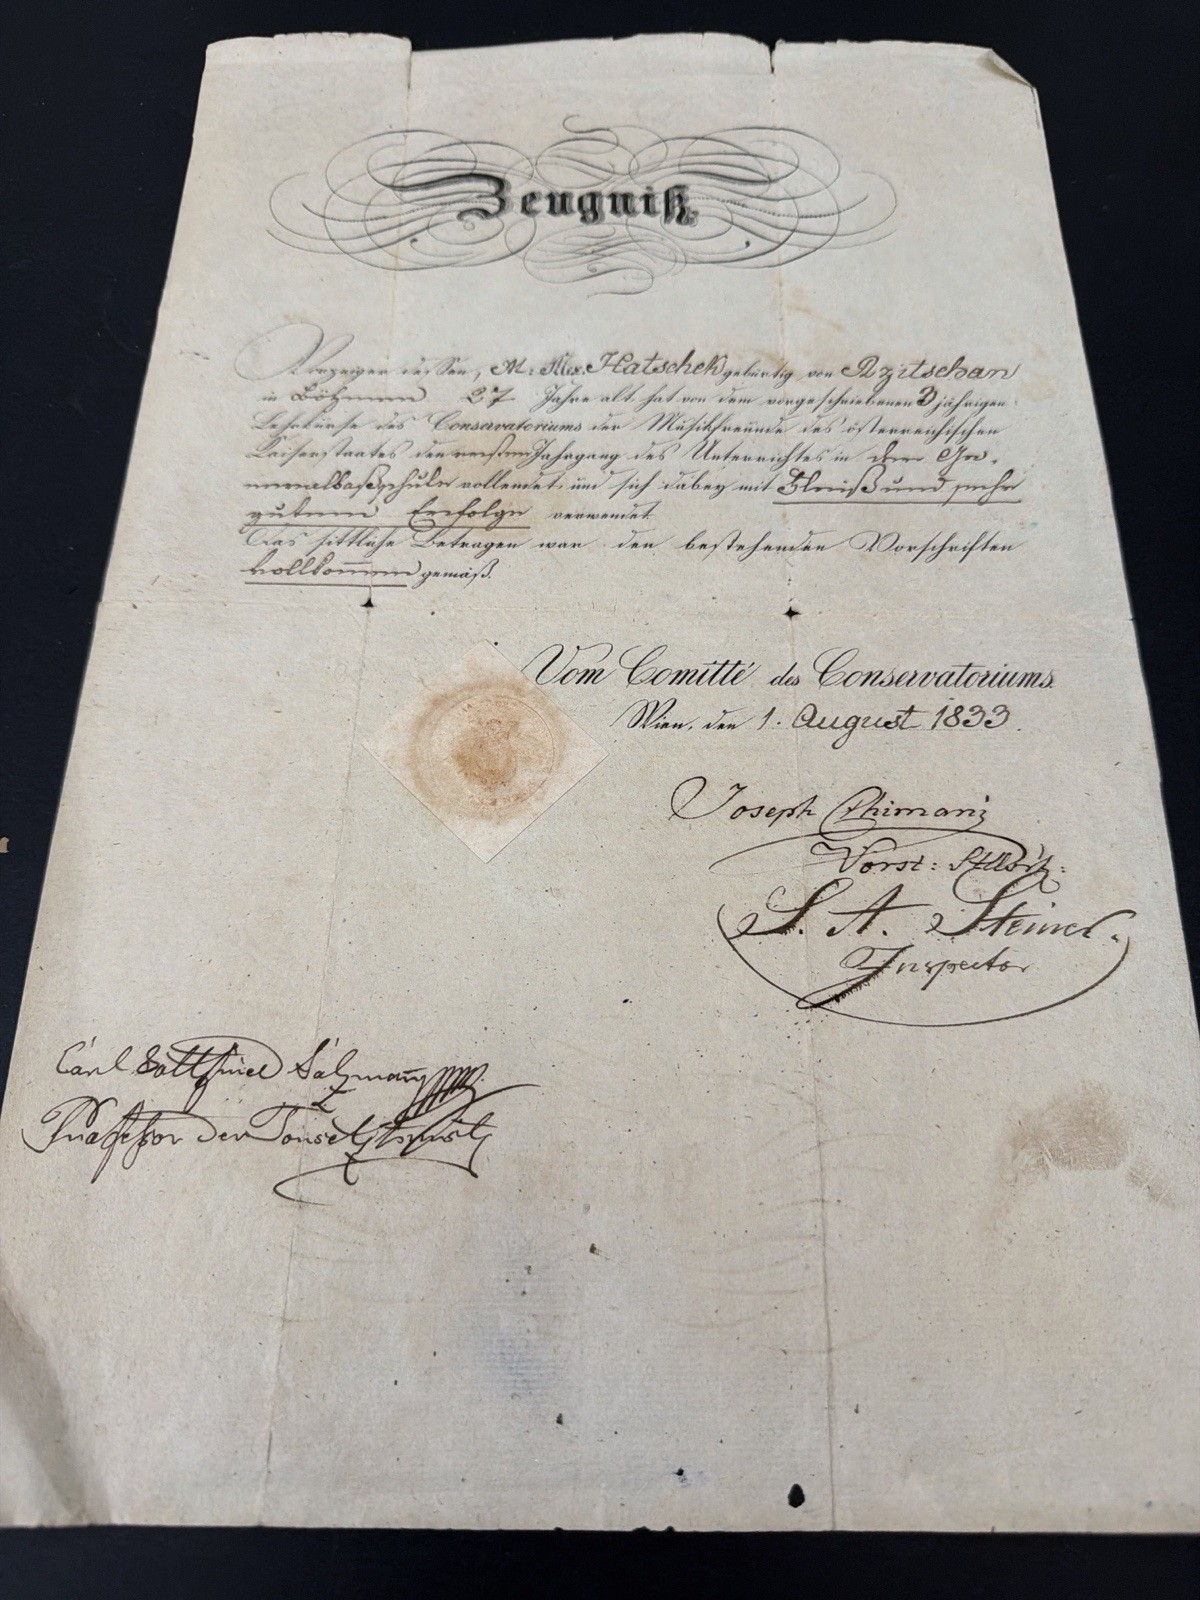 Zeugniß.
Vorzeiger dessen, M: Alex. Hatschek gebürtig von Rzitschan
in Böhmen 27 Jahre alt hat von dem vorgeschriebenen 3 jährigen
Lehrkurse des Conservatoriums der Musikfreunde des österreichischen
Kaiserstaates den ersten Jahrgang des Unterrichtes in der Ge-
neralbaßschule vollendet, und sich dabey mit Fleiß und sehr
gutem Erfolge verwendet.
Das sittliche Betragen war den bestehenden Vorschriften
vollkommen gemäß.
Vom Comitté des Conservatoriums.
Wien, den 1. August 1833.
Joseph Chimani
Vorst:
S. A. Steiner.
Inspector
Carl Gottfried Salzmann
Professor der Tonsetzkunst